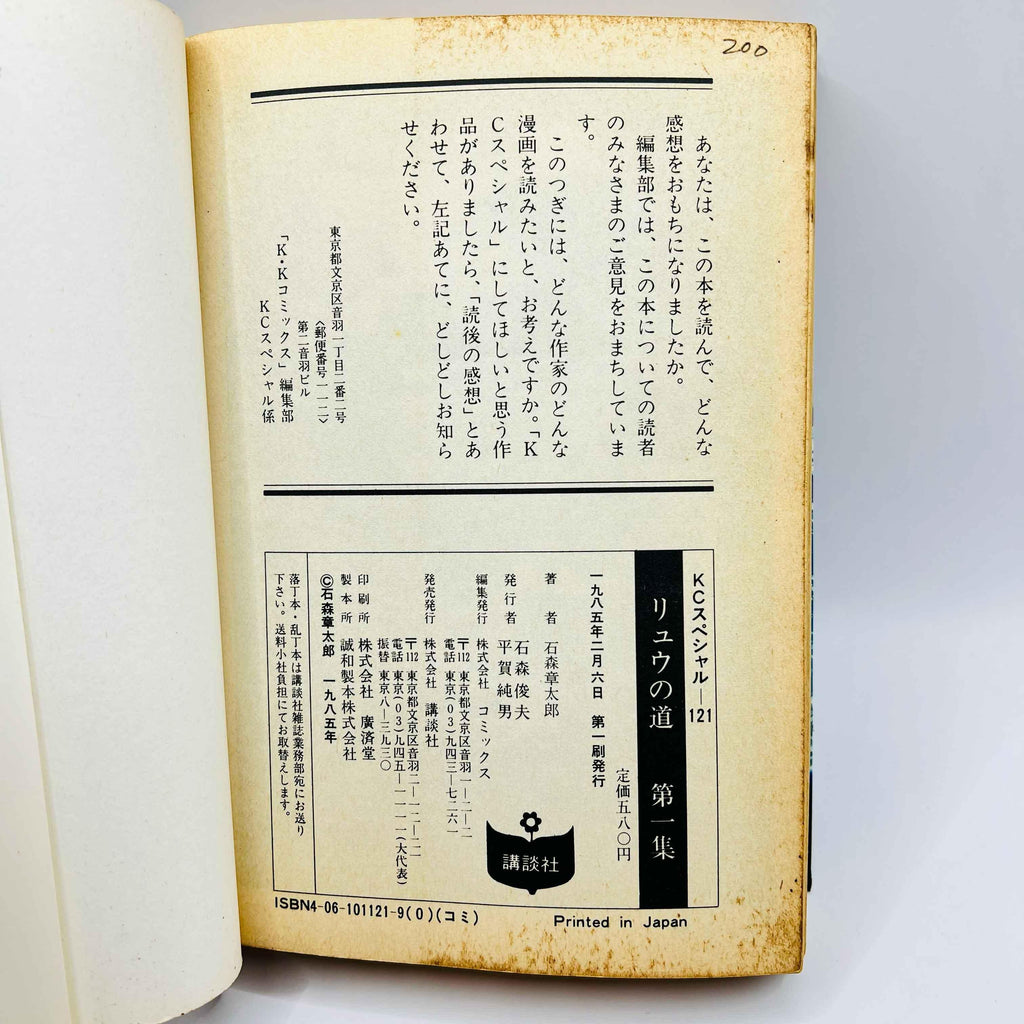 200
あなたは、この本を読んで、どんな
感想をおもちになりましたか。
編集部では、この本についての読者
のみなさまのご意見をおまちしていま
す。
このつぎには、どんな作家のどんな
漫画を読みたいと、お考えですか。「K
Cスペシャル」にしてほしいと思う作
品がありましたら、「読後の感想」とあ
わせて、左記あてに、どしどしお知ら
せください。
東京都文京区音羽一丁目二番二号
〈郵便番号一一二〉
第二音羽ビル
「K・Kコミックス」編集部
KCスペシャル係
KCスペシャル—121
リュウの道 第一集
定価五八〇円
一九八五年二月六日 第一刷発行
著者 石森章太郎
発行者 石森俊夫
平賀純男
編集発行 株式会社 コミックス
〒112 東京都文京区音羽一-二-二
電話 東京(03)九四三-七二六一
発売発行 株式会社 講談社
〒112 東京都文京区音羽二-一二-二一
電話 東京(03)九四五-一一一一(大代表)
振替 東京八-三九三〇
印刷所 株式会社 廣済堂
製本所 誠和製本株式会社
©石森章太郎 一九八五年
落丁本・乱丁本は講談社雑誌業務部宛にお送り
下さい。送料小社負担にてお取替えします。
講談社
ISBN4-06-101121-9(0)(コミ)
Printed in Japan